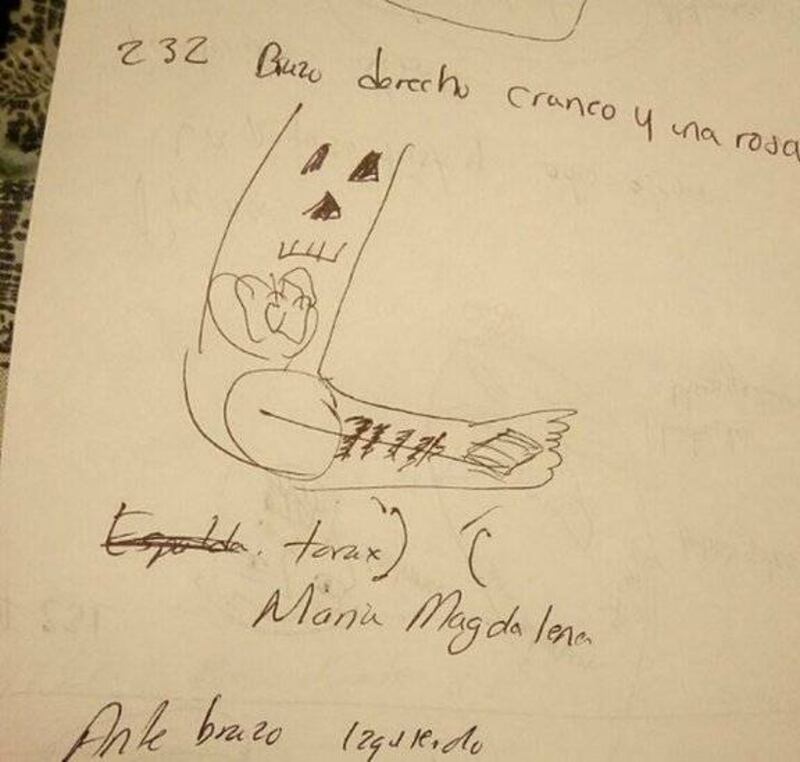 232 Brazo derecho craneo y una rosa
Espalda. torax) (
Maria Magdalena
Ante brazo Izquierdo